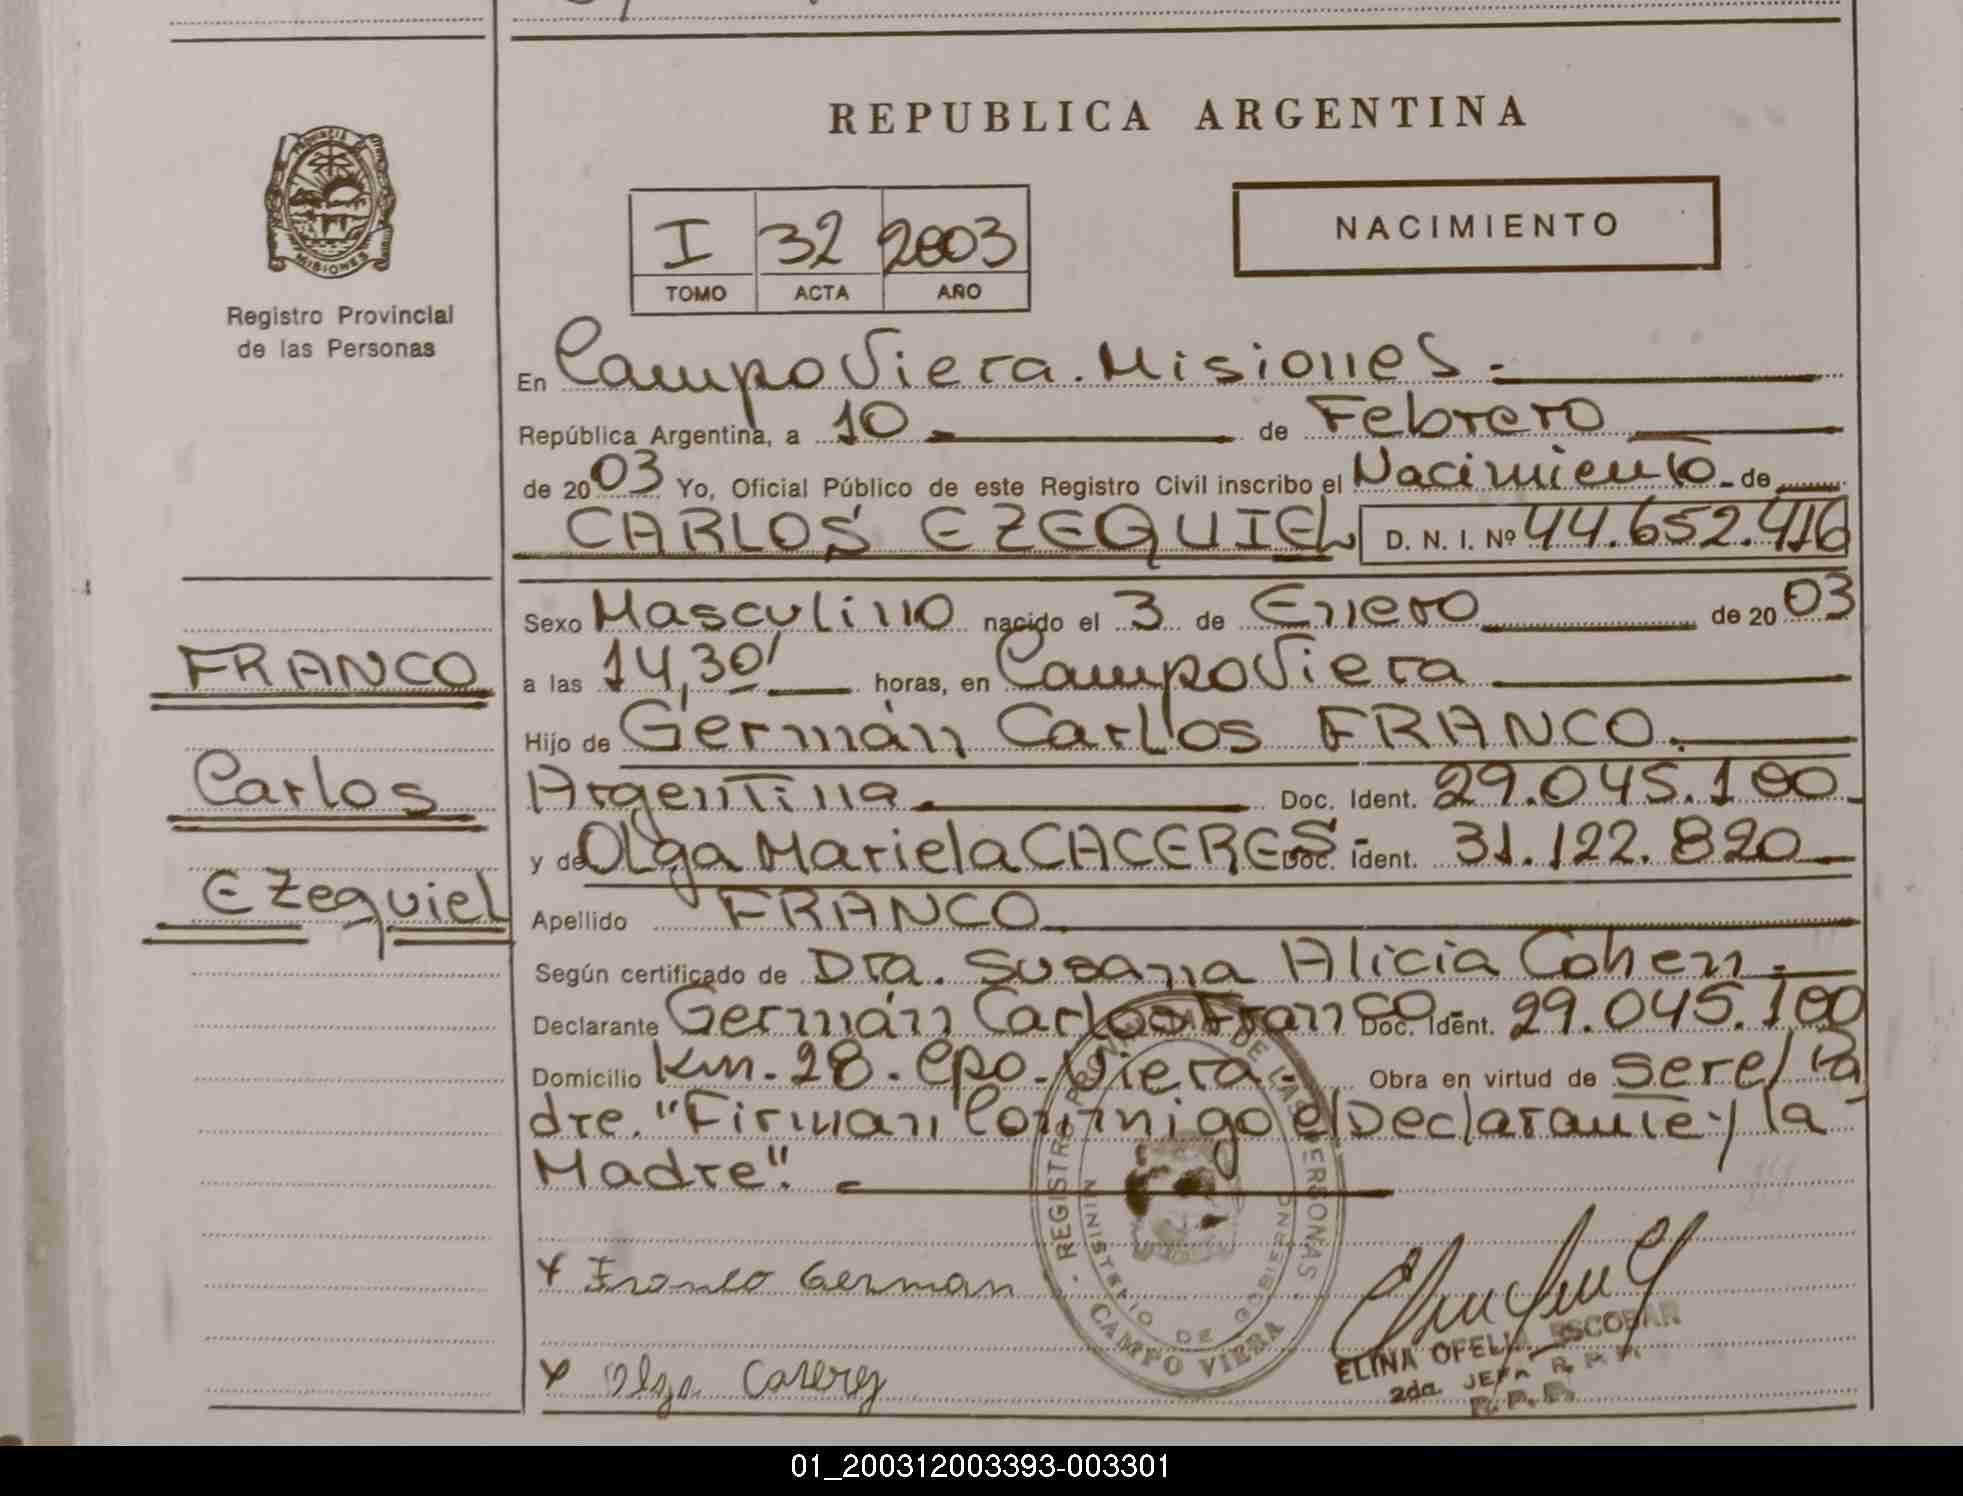 REPUBLICA ARGENTINA
PROVINCIA
MISIONES
Registro Provincial
de las Personas
I 32 2003
TOMO ACTA AÑO
NACIMIENTO
En Campo Viera. Misiones.-
República Argentina, a 10 de Febrero
de 2003 Yo, Oficial Público de este Registro Civil inscribo el Nacimiento de
CARLOS EZEQUIEL D. N. I. Nº 44.652.416
Sexo Masculino nacido el 3 de Enero de 2003
a las 14,30' horas, en Campo Viera
Hijo de Germán Carlos FRANCO.
Argentina Doc. Ident. 29.045.100
y de Olga Mariela CACERES Doc. Ident. 31.122.820
Apellido FRANCO
Según certificado de Dra. Susana Alicia Cohen.-
Declarante Germán Carlos Franco Doc. Ident. 29.045.100
Domicilio Km. 28. Cpo. Viera. Obra en virtud de ser el Pa
dre. "Firman Conmigo el Declarante y la
Madre".
FRANCO
Carlos
Ezequiel
x Franco German
x Olga Caserez
REGISTRO DE LAS PERSONAS
MINISTERIO DE GOBIERNO
CAMPO VIERA
ELINA OFELIA ESCOBAR
2da. JEFA R. P. P.
R. P. P.
01_200312003393-003301